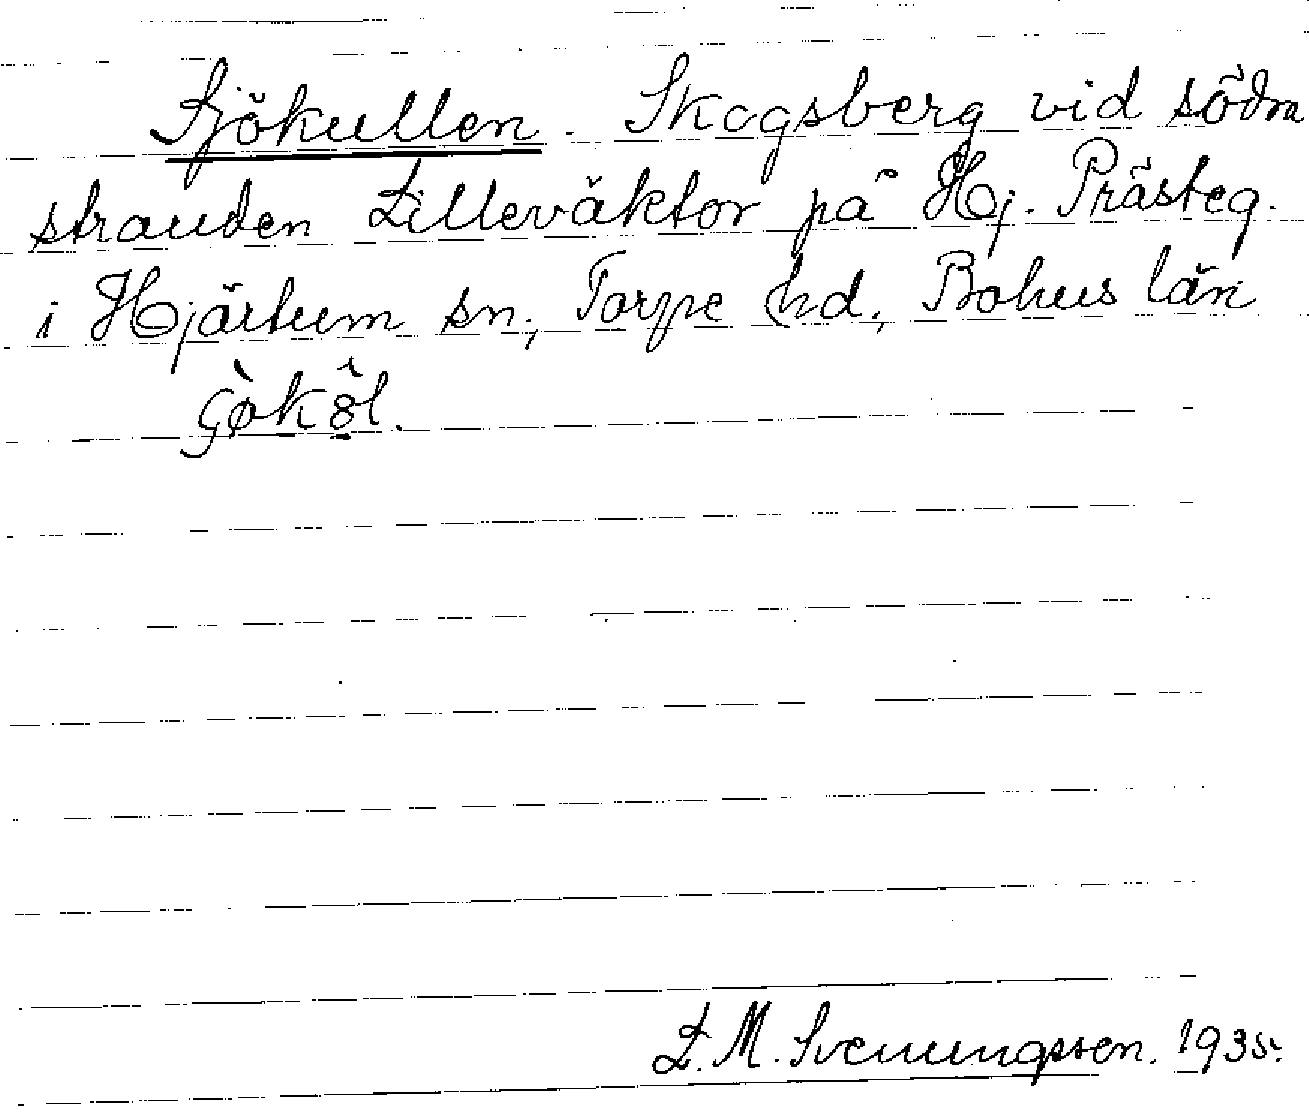 Sjökullen. Skogsberg vid södra
stranden Lilleväktor på Hj. Prästeg.
i Hjärtum sn, Torpe hd, Bohus län
L. M. Svenungsson. 1935.